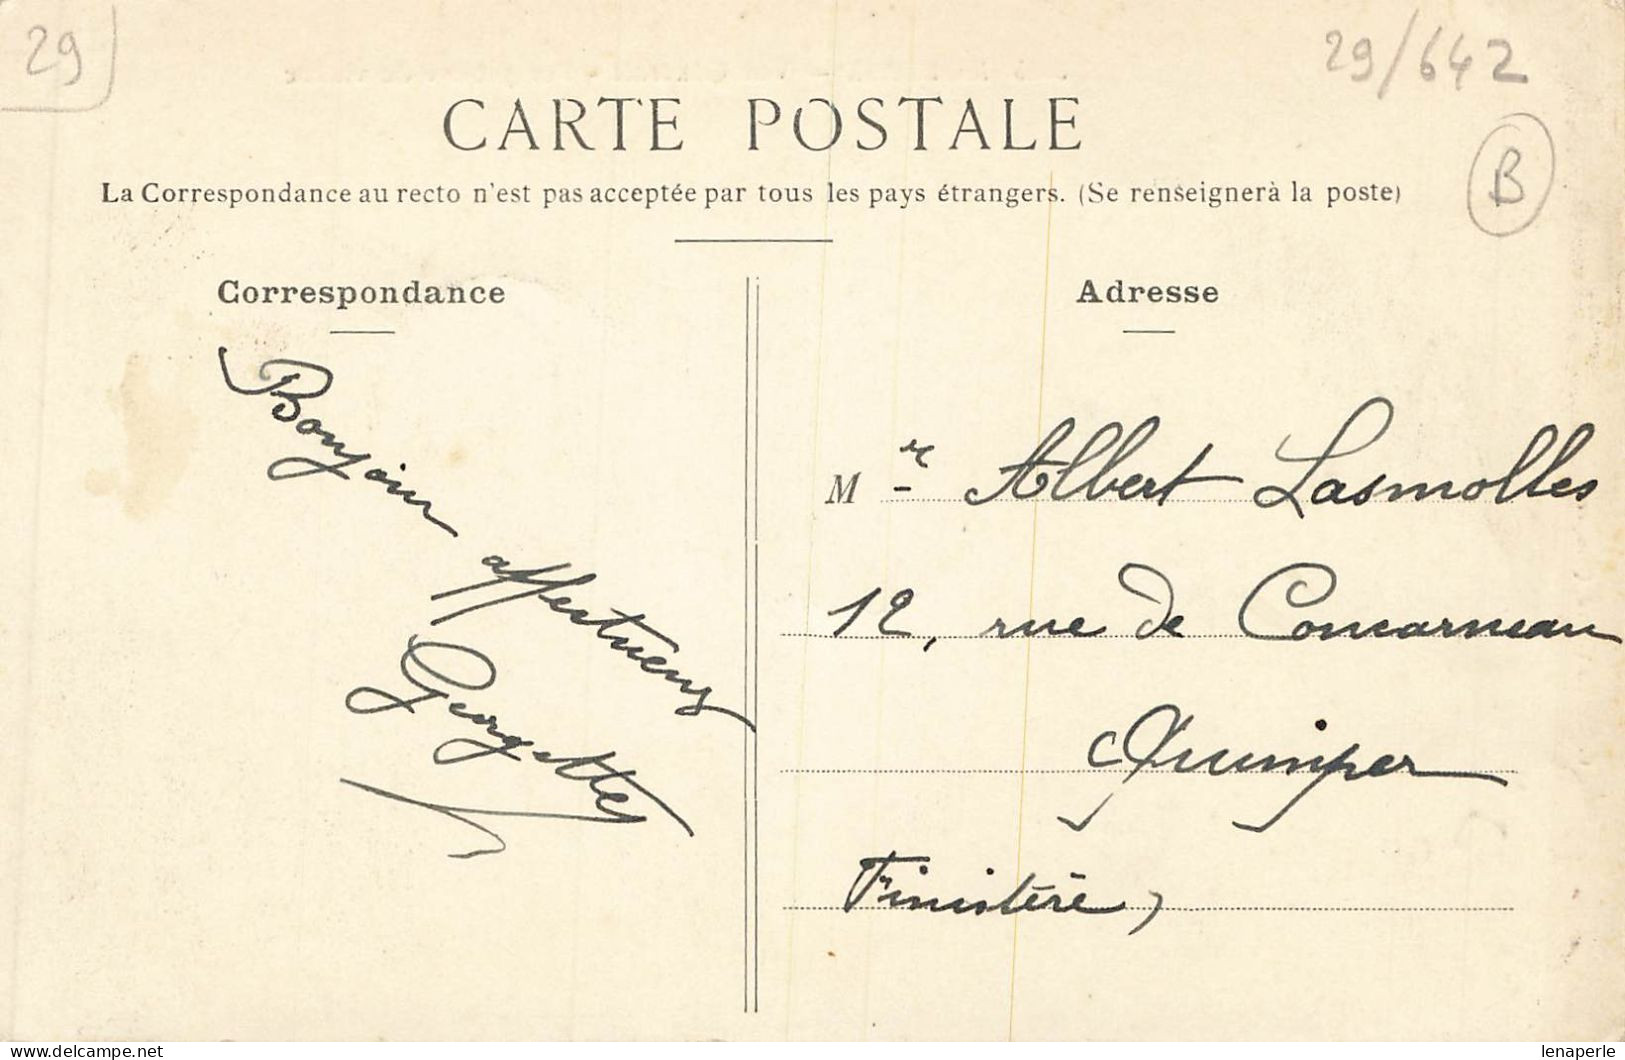 29
29/642
B
CARTE POSTALE
La Correspondance au recto n'est pas acceptée par tous les pays étrangers. (Se renseigner à la poste)
Correspondance
Bonjour
affectueux
Georgette
Adresse
M r Albert Lasmolles
12, rue de Concarneau
Quimper
Finistère)
www.delcampe.net
lenaperle